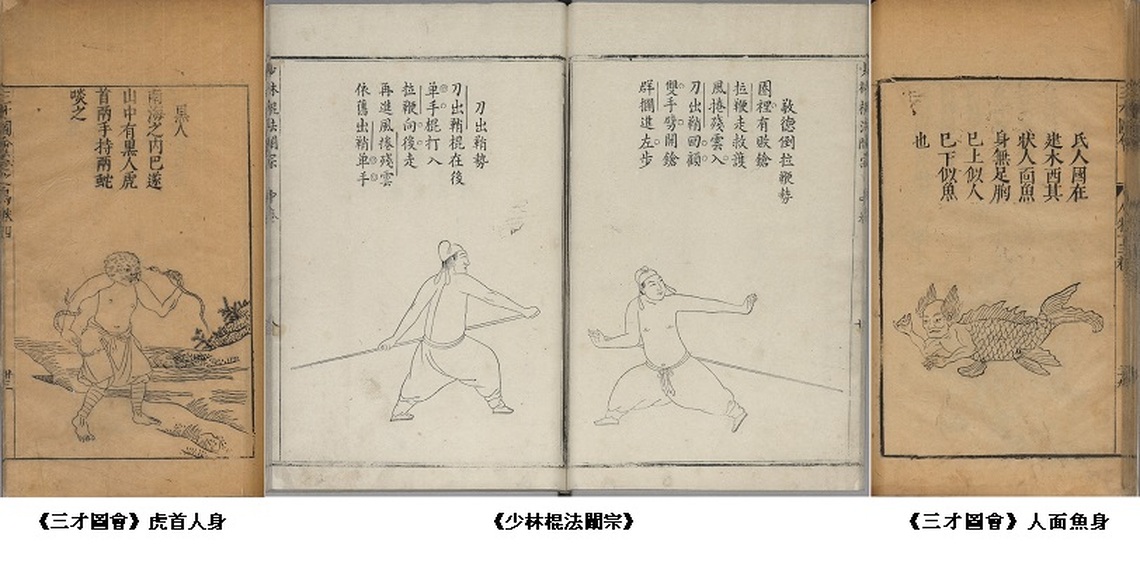 氏人國在
建木西其
狀人面魚
身無足胸
已上似人
已下似魚
也
敬德倒拉鞭勢
圈裡有敗鎗
拉鞭走救護
風捲殘雲入
刀出鞘回顧
雙手劈開鎗
群攔進左步
刀出鞘勢
刀出鞘棍在後
单手棍打入
拉鞭向後走
再進風捲殘雲
依舊出鞘单手
黒人
南海之內巴遂
山中有黒人虎
首兩手持兩蛇
啖之
《三才圖會》虎首人身
《少林棍法闡宗》
《三才圖會》人面魚身